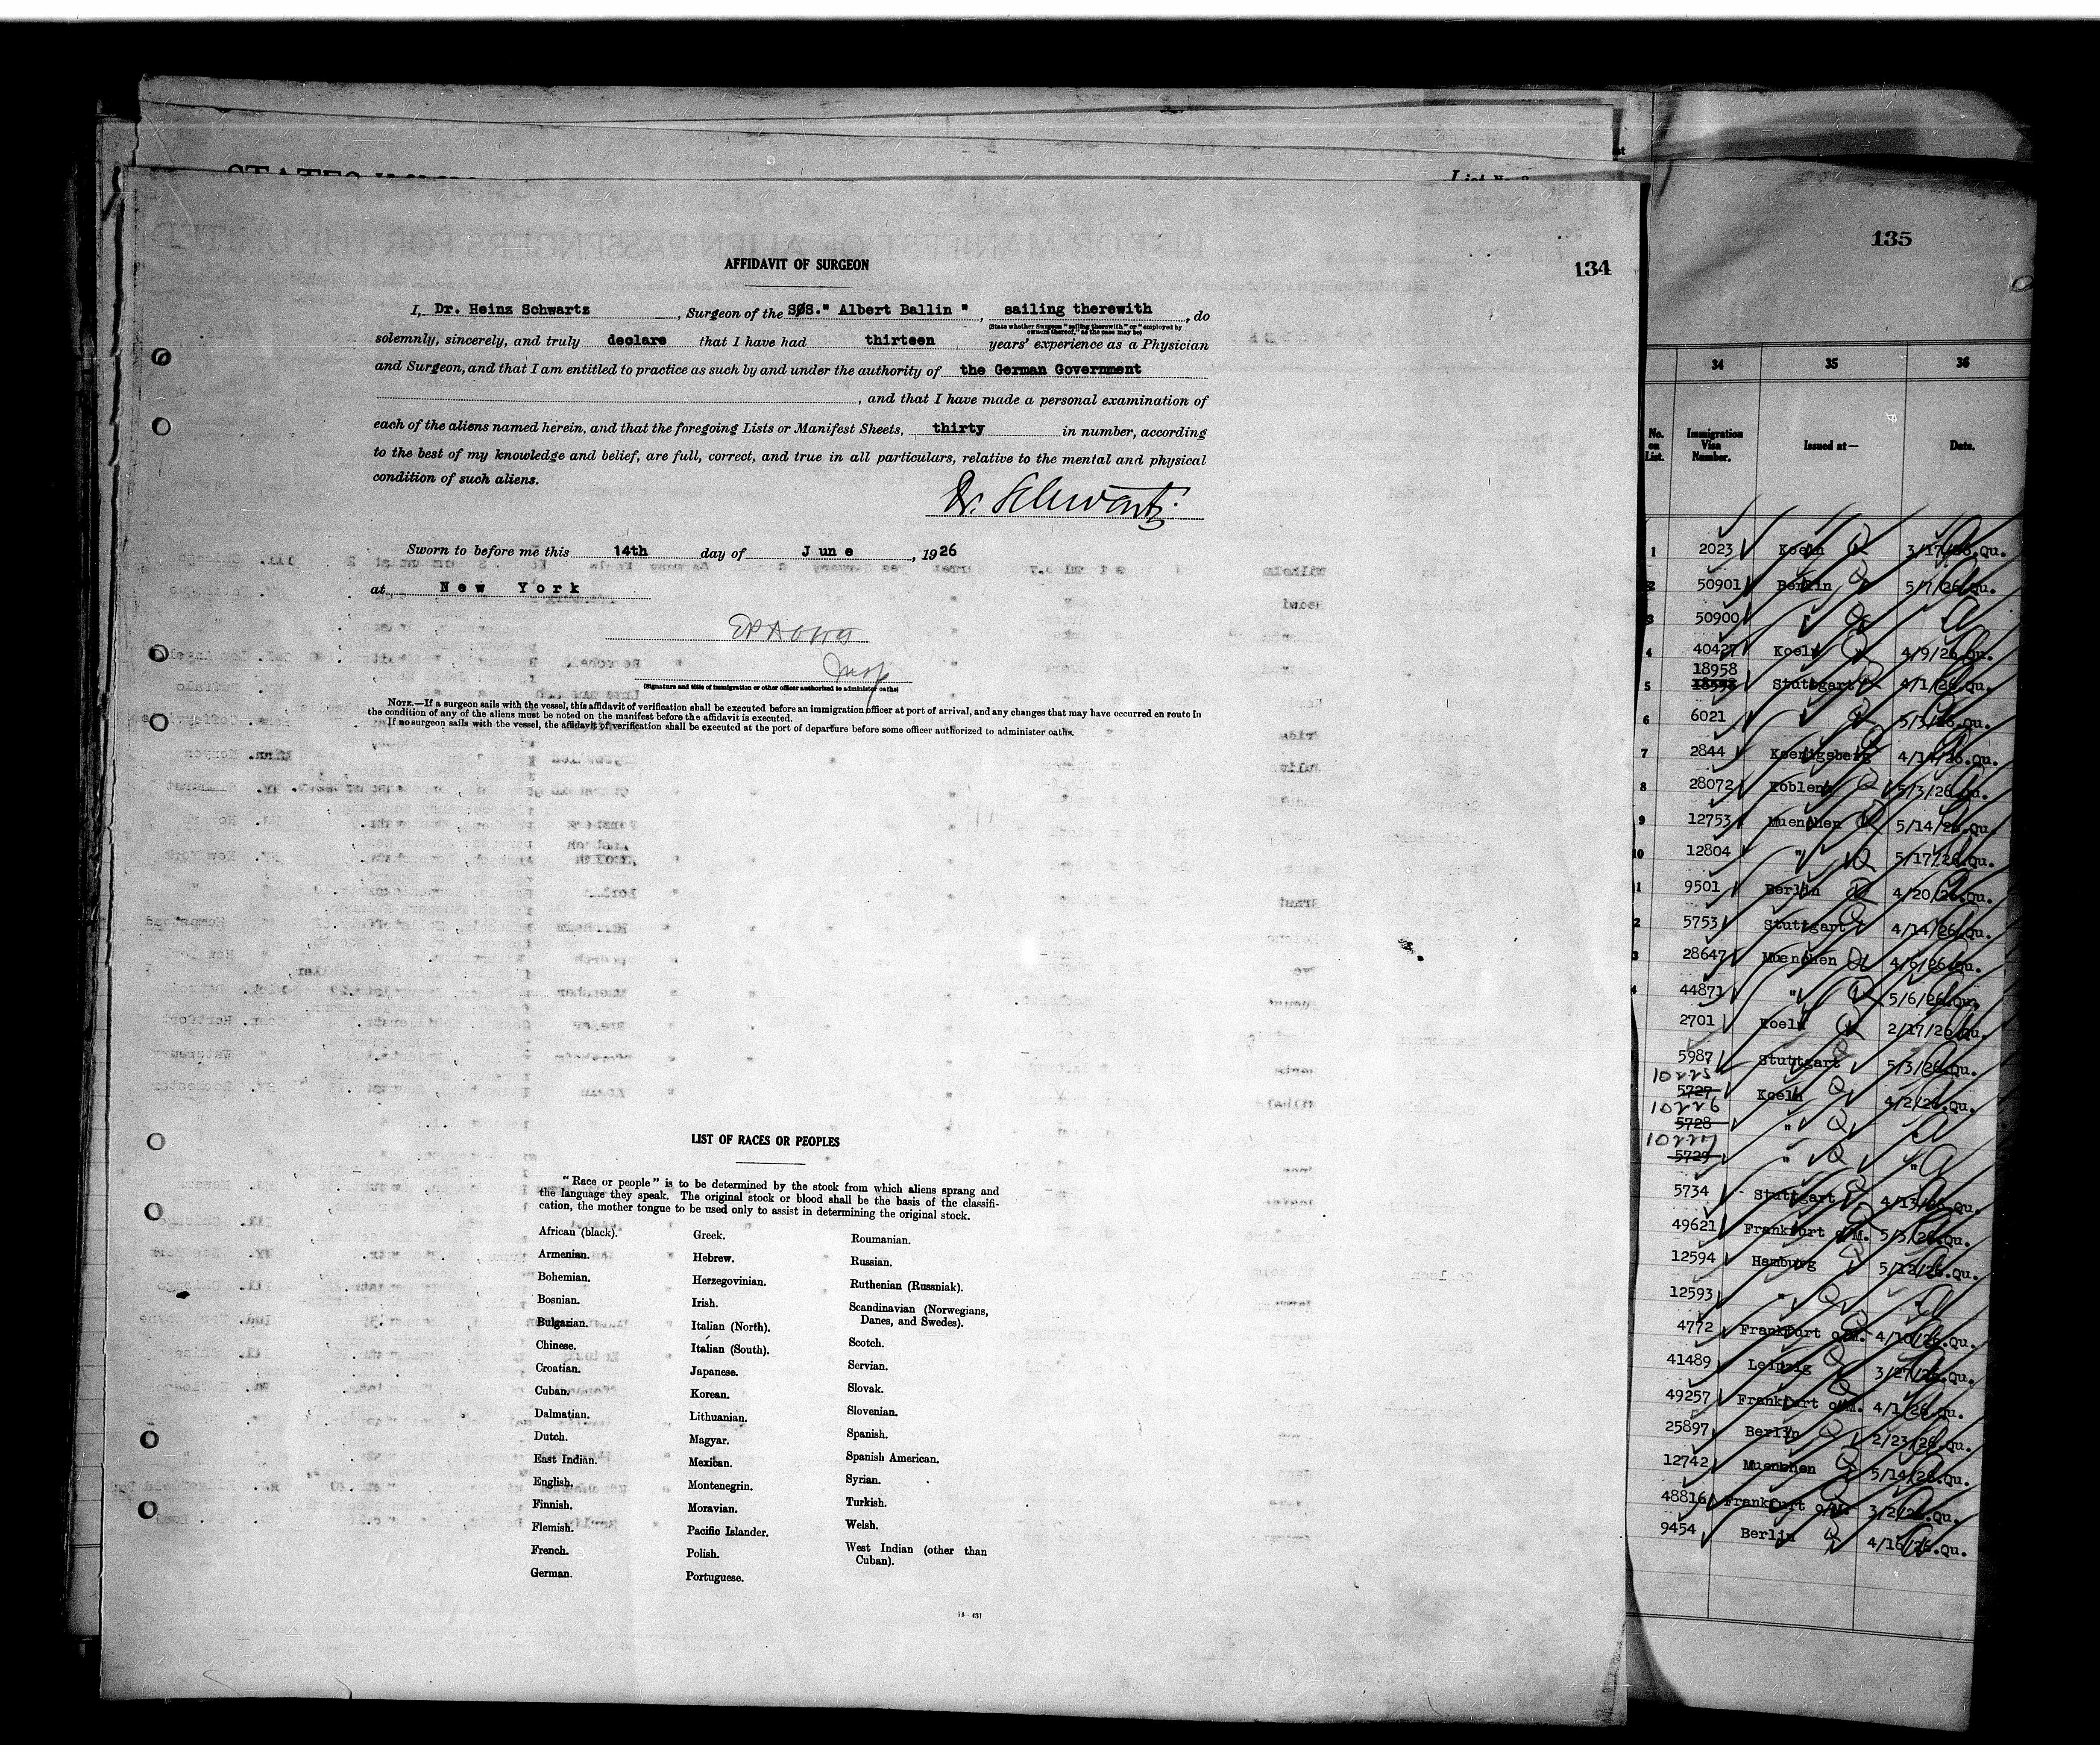 134
AFFIDAVIT OF SURGEON
I, Dr. Heinz Schwartz, Surgeon of the SØS." Albert Ballin ", sailing therewith, do
(State whether Surgeon "sailing therewith" or "employed by
owners thereof," as the case may be)
solemnly, sincerely, and truly declare that I have had thirteen years' experience as a Physician
and Surgeon, and that I am entitled to practice as such by and under the authority of the German Government
, and that I have made a personal examination of
each of the aliens named herein, and that the foregoing Lists or Manifest Sheets, thirty in number, according
to the best of my knowledge and belief, are full, correct, and true in all particulars, relative to the mental and physical
condition of such aliens.
Dr. Schwartz.
Sworn to before me this 14th day of June, 1926
at New York
(Signature and title of immigration or other officer authorized to administer oaths)
NOTE.—If a surgeon sails with the vessel, this affidavit of verification shall be executed before an immigration officer at port of arrival, and any changes that may have occurred en route in
the condition of any of the aliens must be noted on the manifest before the affidavit is executed.
If no surgeon sails with the vessel, the affidavit of verification shall be executed at the port of departure before some officer authorized to administer oaths.
LIST OF RACES OR PEOPLES
"Race or people" is to be determined by the stock from which aliens sprang and
the language they speak. The original stock or blood shall be the basis of the classifi-
cation, the mother tongue to be used only to assist in determining the original stock.
African (black).
Armenian.
Bohemian.
Bosnian.
Bulgarian.
Chinese.
Croatian.
Cuban.
Dalmatian.
Dutch.
East Indian.
English.
Finnish.
Flemish.
French.
German.
Greek.
Hebrew.
Herzegovinian.
Irish.
Italian (North).
Italian (South).
Japanese.
Korean.
Lithuanian.
Magyar.
Mexican.
Montenegrin.
Moravian.
Pacific Islander.
Polish.
Portuguese.
Roumanian.
Russian.
Ruthenian (Russniak).
Scandinavian (Norwegians,
Danes, and Swedes).
Scotch.
Servian.
Slovak.
Slovenian.
Spanish.
Spanish American.
Syrian.
Turkish.
Welsh.
West Indian (other than
Cuban).
14—431
135
34 35 36
No. on List. Immigration Visa Number. Issued at— Date.
1 2023 Koeln 3/17/26.Qu.
2 50901 Berlin 5/7/26.Qu.
3 50900 "
4 40427 Koeln 4/9/26.Qu.
18958
5 Stuttgart 4/1/26.Qu.
6 6021 " 5/3/26.Qu.
7 2844 Koenigsberg 4/14/26.Qu.
8 28072 Koblenz 5/3/26.Qu.
9 12753 Muenchen 5/14/26.Qu.
10 12804 " 5/17/26.Qu.
1 9501 Berlin 4/20/26.Qu.
2 5753 Stuttgart 4/14/26.Qu.
3 28647 Muenchen 4/6/26.Qu.
4 44871 " 5/6/26.Qu.
2701 Koeln 2/17/26.Qu.
5987 Stuttgart 5/3/26.Qu.
10225
5727 Koeln 4/2/26.Qu.
10226
5728 "
10227
5729 " "
5734 Stuttgart 4/13/26.Qu.
49621 Frankfurt o/M. 5/3/26.Qu.
12594 Hamburg 5/12/26.Qu.
12593 "
4772 Frankfurt o/M. 4/10/26.Qu.
41489 Leipzig 3/27/26.Qu.
49257 Frankfurt o/M. 4/1/26.Qu.
25897 Berlin 2/23/26.Qu.
12742 Muenchen 5/14/26.Qu.
48816 Frankfurt o/M. 3/2/26.Qu.
9454 Berlin 4/16/26.Qu.